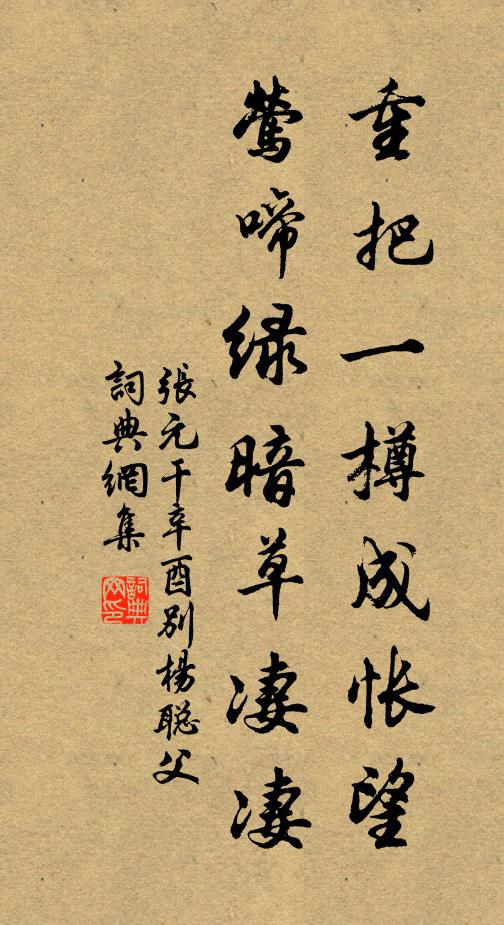 重把一樽成怅望
莺啼绿暗草凄凄
張元干辛酉别楊聪父
詞典網集
詞典網印